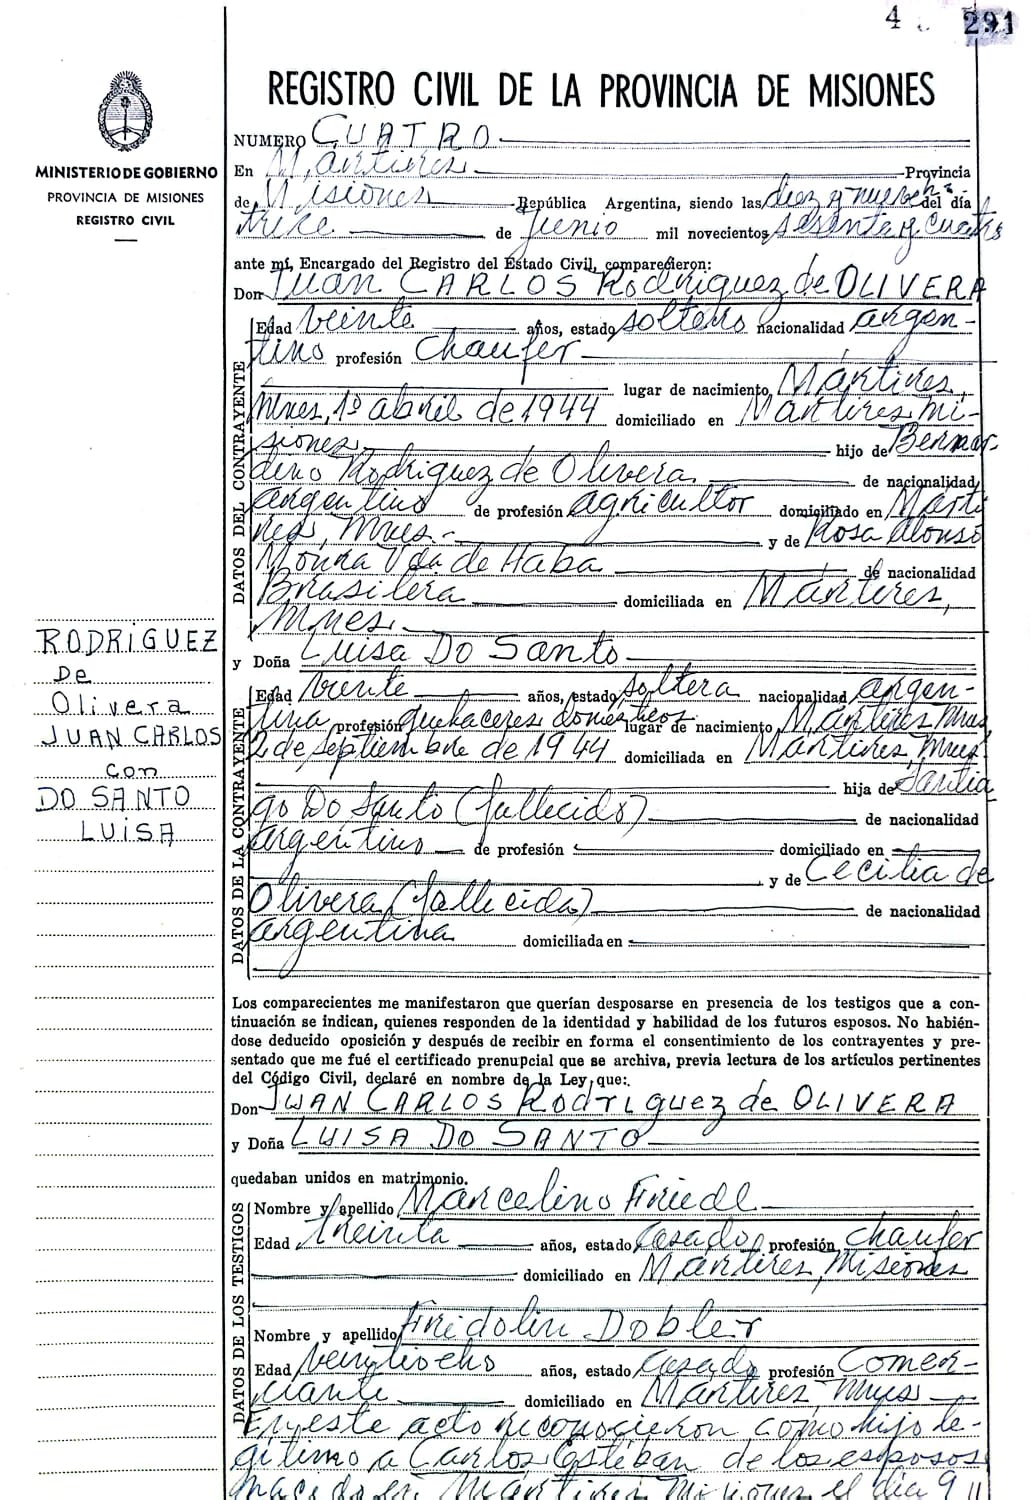 4 291
REGISTRO CIVIL DE LA PROVINCIA DE MISIONES
MINISTERIO DE GOBIERNO
PROVINCIA DE MISIONES
REGISTRO CIVIL
NUMERO CUATRO
En Mártires Provincia
de Misiones República Argentina, siendo las diez y nueve hs del día
trece de Junio mil novecientos sesenta y cuatro
ante mí, Encargado del Registro del Estado Civil, comparecieron:
Don Juan CARLOS Rodriguez de OLIVERA
DATOS DEL CONTRAYENTE
Edad veinte años, estado soltero nacionalidad argen-
tino profesión Chaufer
lugar de nacimiento Mártires,
Mnes, 1º abril de 1944 domiciliado en Mártires Mi-
siones hijo de Bernar
dino Rodriguez de Olivera de nacionalidad
argentino de profesión agricultor domiciliado en Marti
res, Mnes.- y de Rosa Alonso
Moura Vda de Haba de nacionalidad
Brasilera domiciliada en Mártires,
Mnes.
y Doña Luisa Do Santo
RODRIGUEZ
De
Olivera
JUAN CARLOS
con
DO SANTO
LUISA
DATOS DE LA CONTRAYENTE
Edad veinte años, estado soltera nacionalidad argen-
tina profesión quehaceres domésticos lugar de nacimiento Mártires Mnes
2 de septiembre de 1944 domiciliada en Mártires, Mnes.
hija de Santia
go Do Santo (fallecido) de nacionalidad
argentino de profesión domiciliado en
y de Cecilia de
Olivera (fallecida) de nacionalidad
argentina domiciliada en
Los comparecientes me manifestaron que querían desposarse en presencia de los testigos que a con-
tinuación se indican, quienes responden de la identidad y habilidad de los futuros esposos. No habién-
dose deducido oposición y después de recibir en forma el consentimiento de los contrayentes y pre-
sentado que me fué el certificado prenupcial que se archiva, previa lectura de los artículos pertinentes
del Código Civil, declaré en nombre de la Ley, que:
Don JUAN CARLOS Rodriguez de OLIVERA
y Doña LUISA DO SANTO
quedaban unidos en matrimonio.
DATOS DE LOS TESTIGOS
Nombre y apellido Marcelino Friedl
Edad treinta años, estado Casado profesión chaufer
domiciliado en Mártires, Misiones
Nombre y apellido Fridolin Dobler
Edad veintiocho años, estado Casado profesión Comer-
ciante domiciliado en Mártires, Mnes
En este acto reconocieron como hijo le-
gitimo a Carlos Estéban de los esposos
nacido en Mártires Misiones el día 9